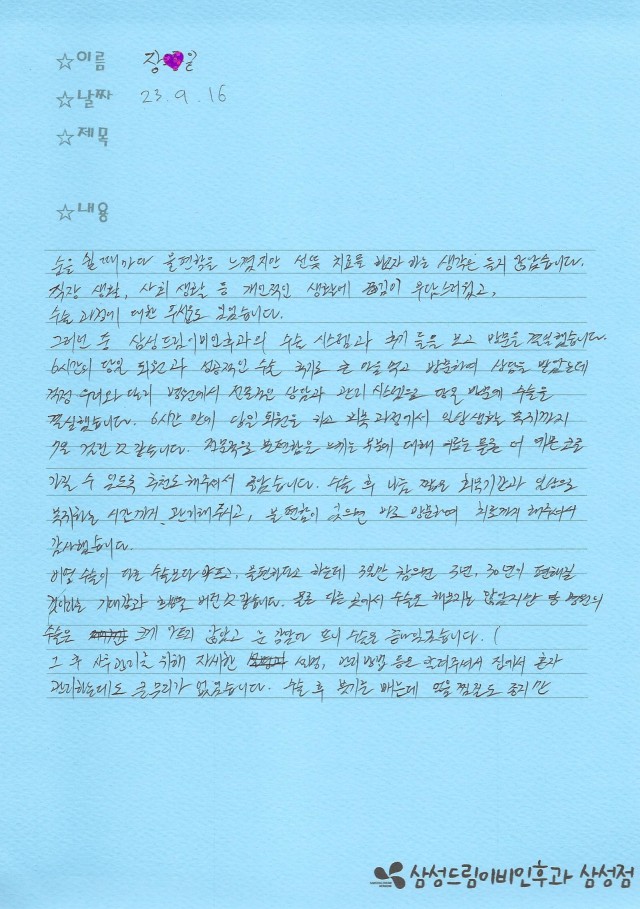 ☆이름 장 일
☆날짜 23. 9. 16
☆제목
☆내용
숨을 쉴 때마다 불편함을 느꼈지만 선뜻 치료를 하고자 하는 생각은 들지 않았습니다.
직장 생활, 사회 생활 등 개인적인 생활에 부담스러웠고,
수술 과정에 대한 무섭도 있었습니다.
그러던 중 삼성드림이비인후과의 수술 시스템과 후기 들을 보고 방문을 했습니다.
6시간의 당일 퇴원과 성공적인 수술 후기로 큰 마음 먹고 방문하여 상담을 받았는데
걱정 우려와 달리 병원에서 전문적인 상담과 관리 시스템으로 당일 방문에 수술을
했습니다. 6시간 만에 당일 퇴원을 하고 회복 과정에서 일상생활 복귀까지
것 같습니다. 불편함을 느끼는 부분에 대해 의료는 물론 더 예쁜 코로
가질 수 있도록 추천도 해주셔서 좋았습니다. 수술 후 나름 짧은 회복기간과 일상으로
복귀하는 시간까지 관리해주시고, 불편함이 있으면 바로 방문하여 치료까지 해주셔서
감사했습니다.
수술이 다른 수술보다 아프고, 불편하다고 하는데 3일만 참으면 3년, 30년이 편해질
것이라는 기대감과 버틴 것 같습니다. 물론 다른 곳에서 수술은 해보지는 않았지만 병원의
수술은 크게 아프지 않았고 눈 감았다 뜨니 수술은 끝나있었습니다. (
그 후 사후관리를 위해 자세한 방법 등을 알려주셔서 집에서 혼자
관리하는데도 큰 무리가 없었습니다. 수술 후 붓기를 빼는데 얼음 찜질도 좋지만
삼성드림이비인후과 삼성점